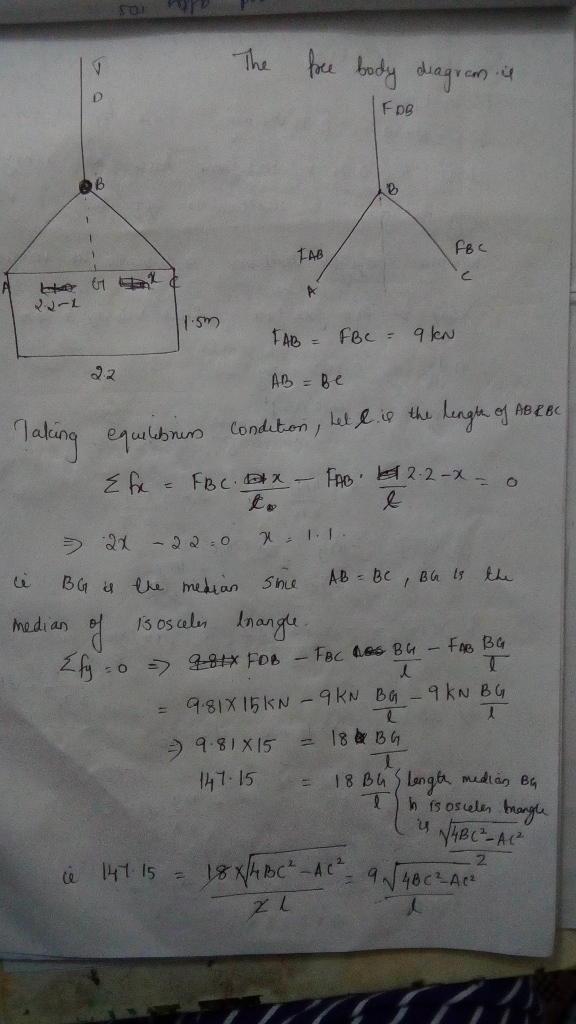 The free body diagram is
T
D
B
A
G
x
C
2.2-x
1.5m
2.2
FDB
B
FAB
A
FBC
C
FAB = FBC = 9 kN
AB = BC
Taking equilibrium condition, Let l is the length of AB & BC
Σfx = FBC. x/l - FAB. 2.2-x/l = 0
⇒ 2x - 2.2 = 0 x = 1.1.
ie BG is the median since AB = BC, BG is the
median of isosceles triangle.
Σfy = 0 ⇒ FDB - FBC BG/l - FAB BG/l
= 9.81X15KN - 9KN BG/l - 9KN BG/l
⇒ 9.81X15 = 18 BG/l
147.15 = 18 BG/l
Length median BG
in isosceles triangle
is √4BC²-AC²/2
ie 147.15 = 18X√4BC²-AC²/2l = 9√4BC²-AC²/l